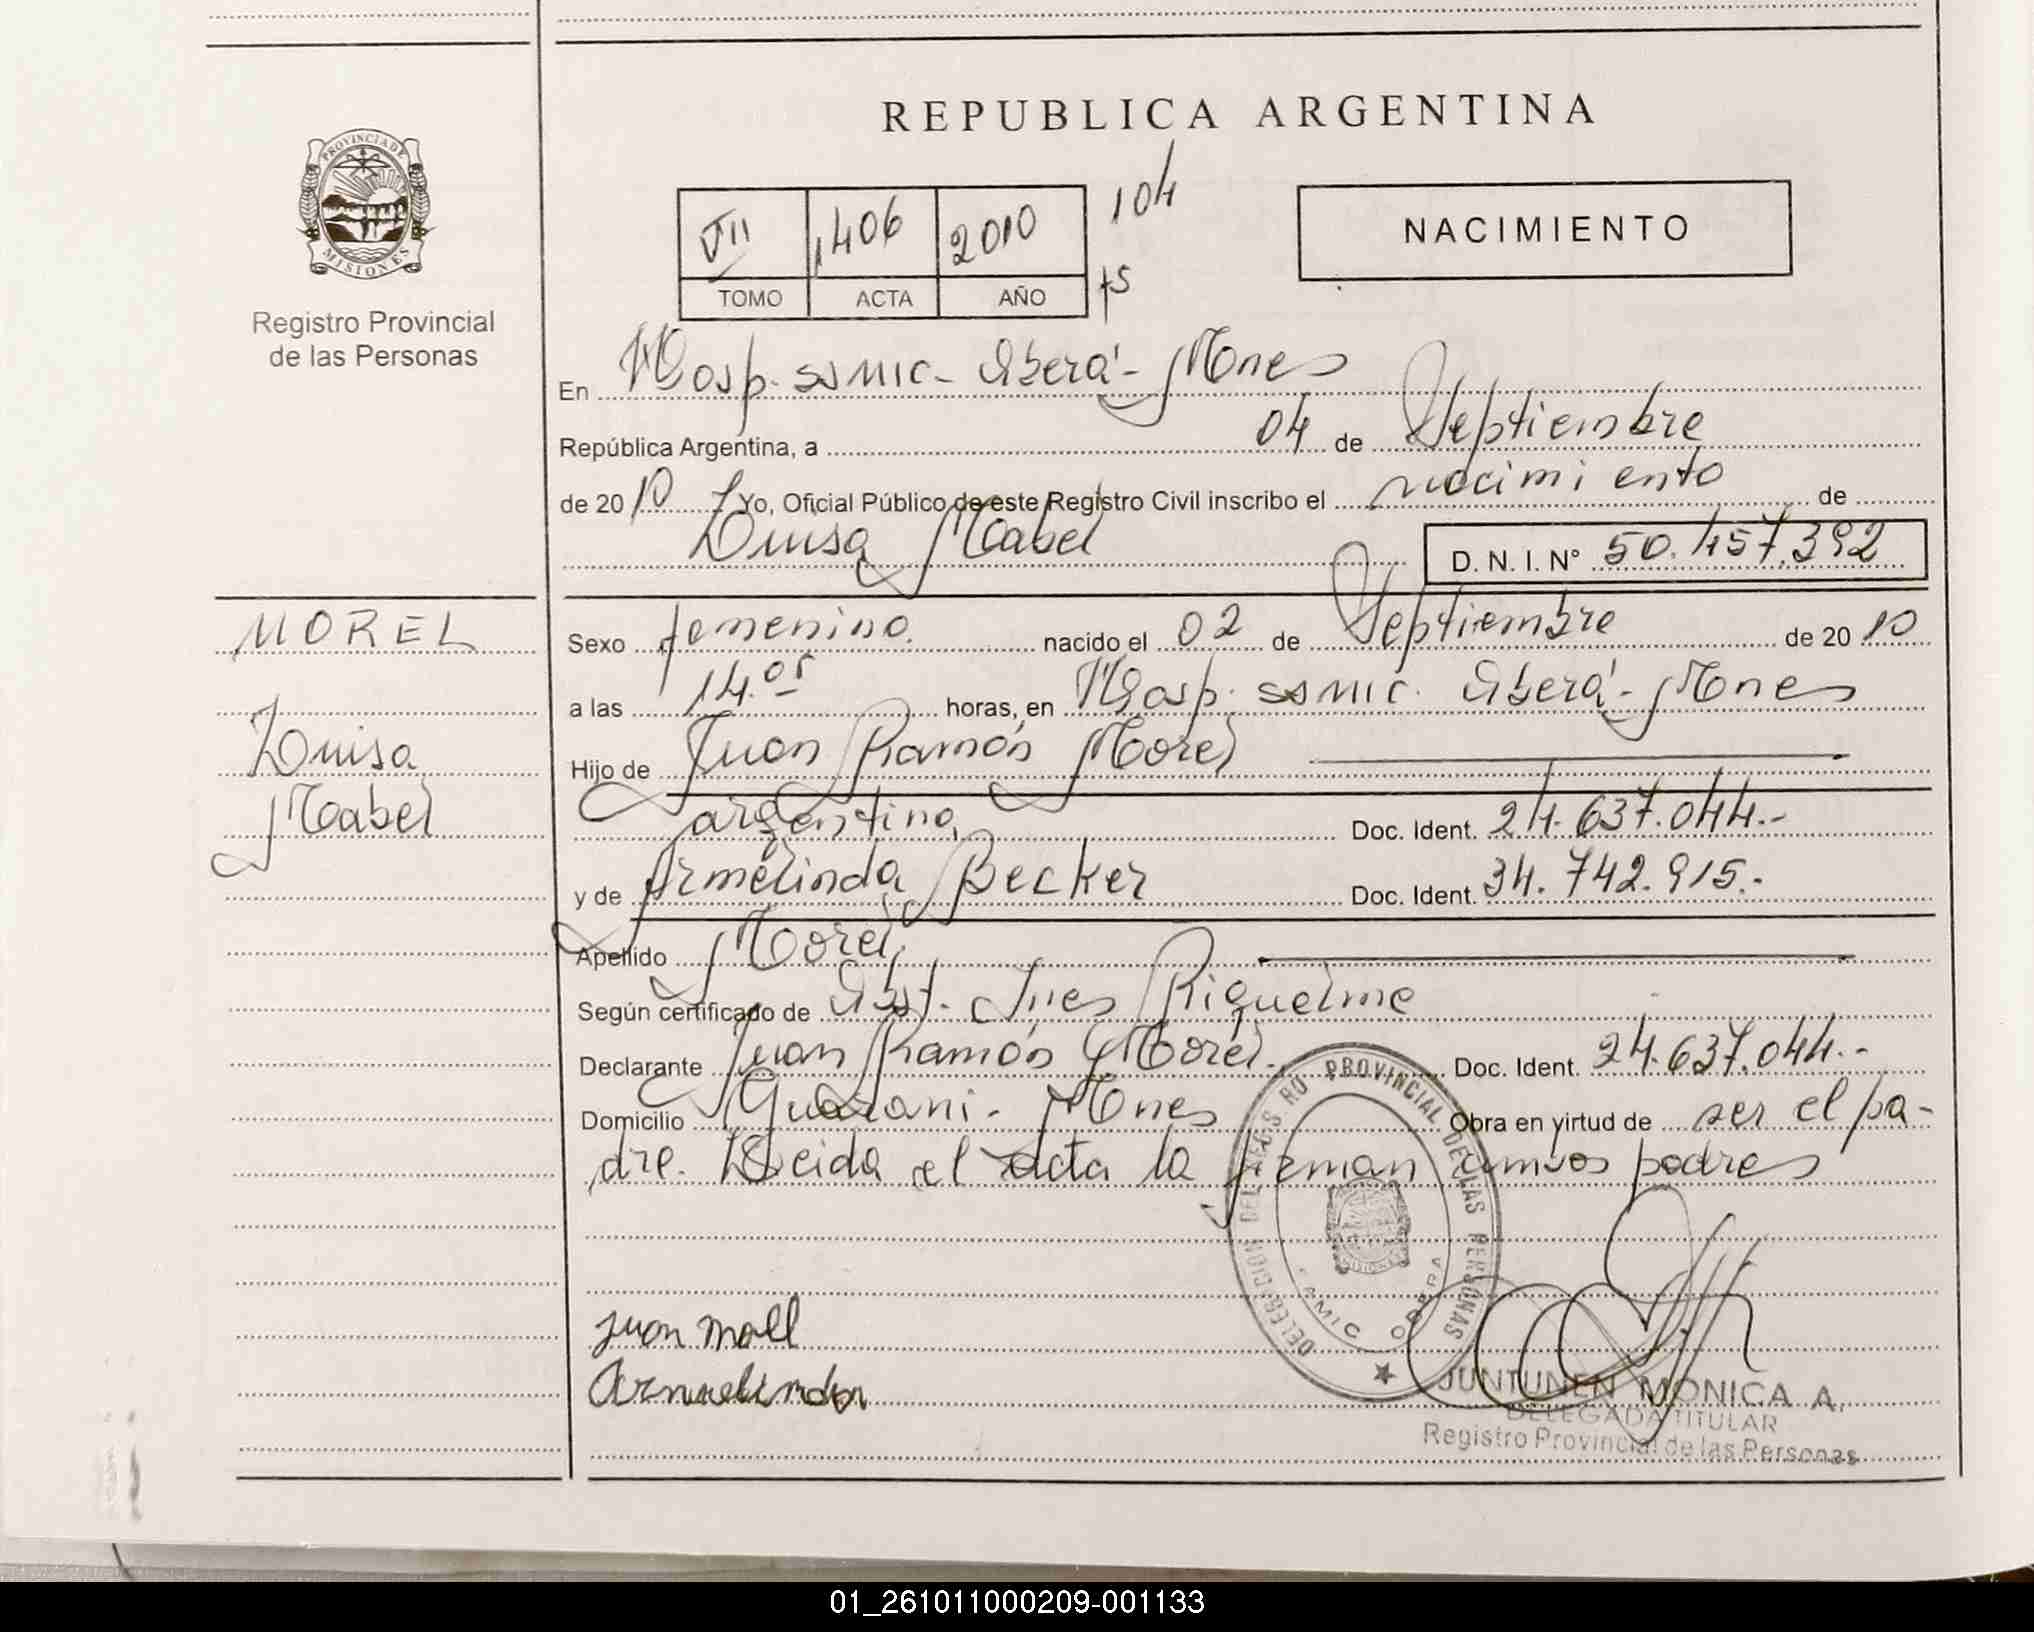 REPUBLICA ARGENTINA
PROVINCIA DE
MISIONES
Registro Provincial
de las Personas
VII 1406 2010 104
TOMO ACTA AÑO
NACIMIENTO
En Hosp. SAMIC - Oberá - Mnes
República Argentina, a 04 de Septiembre
de 2010 Yo, Oficial Público de este Registro Civil inscribo el nacimiento de
Luisa Mabel D. N. I. N° 50.457.392
MOREL
Luisa
Mabel
Sexo femenino. nacido el 02 de Septiembre de 2010
a las 14.05 horas, en Hosp. SAMIC. Oberá - Mnes
Hijo de Juan Ramón Morel
argentino Doc. Ident. 24.637.044.-
y de Armelinda Becker Doc. Ident. 34.742.915.-
Apellido Morel.
Según certificado de Obst. Ines Riquelme
Declarante Juan Ramón Morel. Doc. Ident. 24.637.044.-
Domicilio Guarani - Mnes Obra en virtud de ser el pa-
dre. Leida el acta la firman ambos padres
DELEGACION DEL REGISTRO PROVINCIAL DE LAS PERSONAS
SAMIC OBERA
MISIONES
juan moll
Armelinda
JUNTUNEN MONICA A.
DELEGADA TITULAR
Registro Provincial de las Personas
01_261011000209-001133